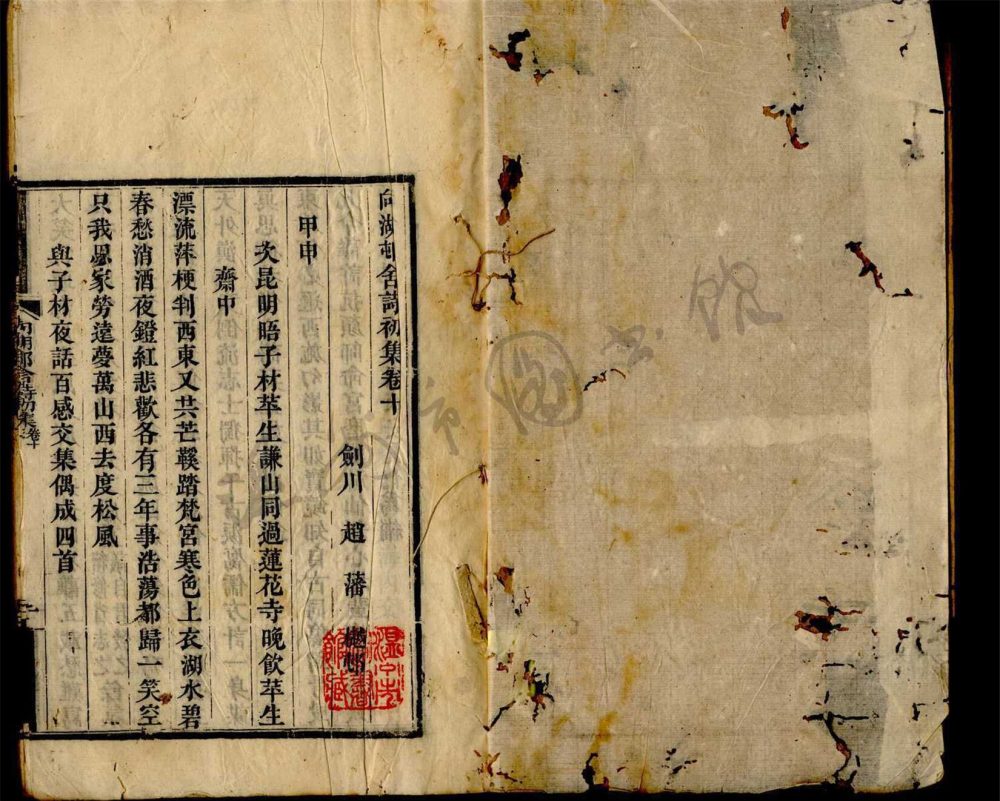 向湖邨舍詩初集卷十
劍川 趙 藩 樾村
甲申
次昆明晤子材萃生謙山同過蓮花寺晚飲萃生
齋中
漂流萍梗判西東又共芒鞵踏梵宮寒色上衣湖水碧
春愁消酒夜鐙紅悲歡各有三年事浩蕩都歸一笑空
只我思家勞遠夢萬山西去度松風
與子材夜話百感交集偶成四首
向湖邨舍詩初集 卷十